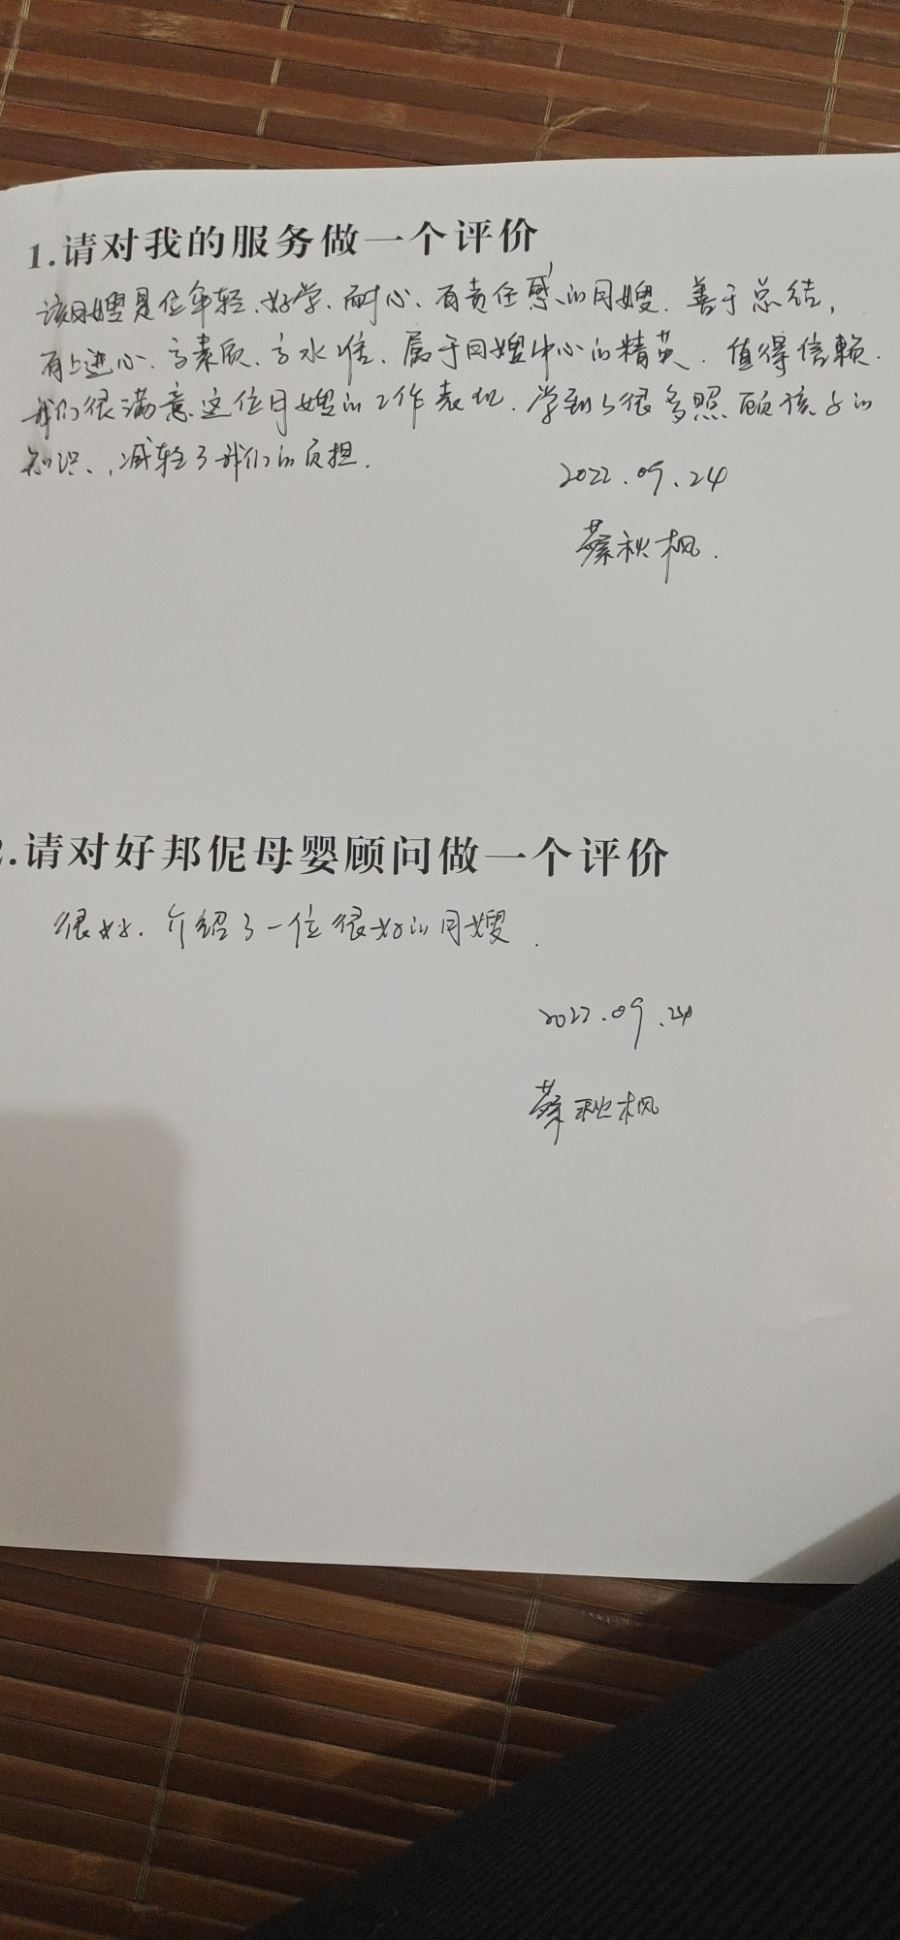 1.请对我的服务做一个评价
该月嫂是位年轻、好学、耐心、有责任感的月嫂.善于总结,
有上进心、高素质、高水准、属于月嫂中心的精英.值得信赖.
我们很满意这位月嫂的工作表现.学到了很多照顾孩子的
知识、,减轻了我们的负担.
2022.09.24
蔡秋枫.
2.请对好邦伲母婴顾问做一个评价
很好.介绍了一位很好的月嫂.
2022.09.24
蔡秋枫